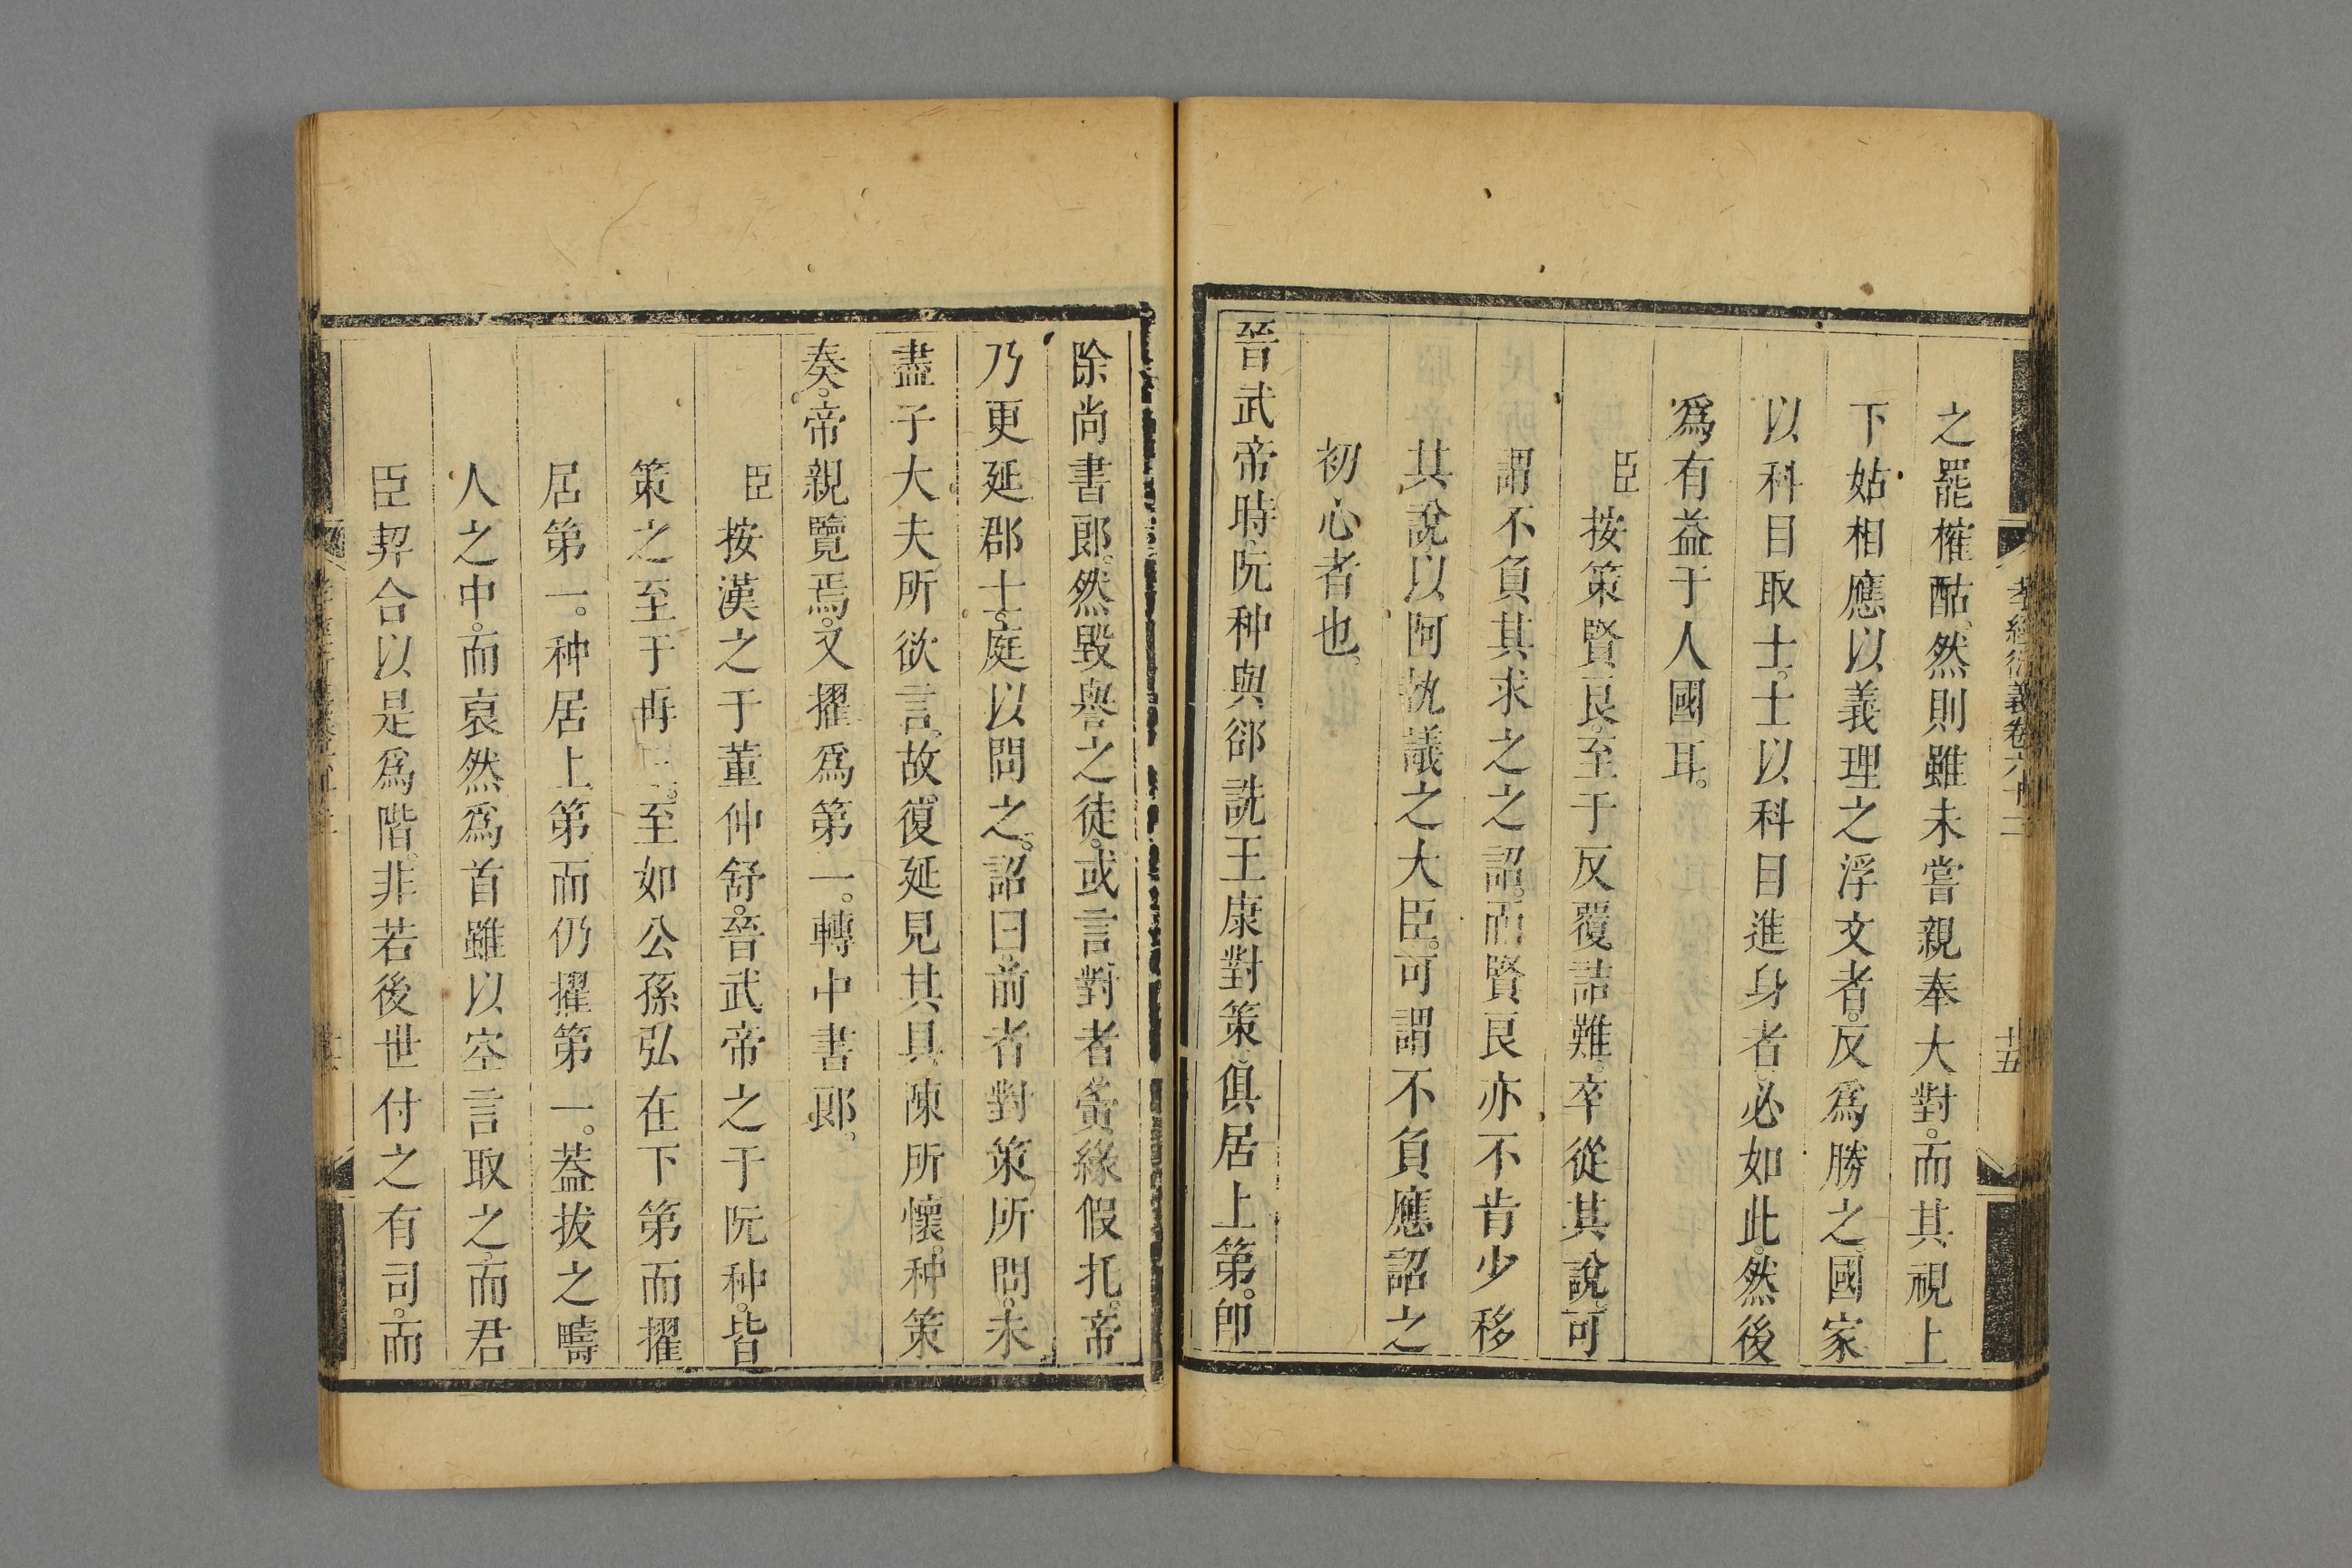 孝經衍義卷六十二
十五
之罷榷酤、然則雖未嘗親奉大對。而其視上
下姑相應以義理之浮文者。反爲勝之、國家
以科目取士。士以科目進身者、必如此。然後
爲有益于人國耳。
臣按策賢良。至于反覆詰難。卒從其說、可
謂不負其求之之詔。而賢良亦不肯少移
其說、以阿執議之大臣。可謂不負應詔之
初心者也。
晉武帝時、阮种與郤詵王康對策、俱居上第。卽
除尚書郎。然毀譽之徒。或言對者黃緣假托。帝
乃更延郡士。庭以問之。詔曰、前者對策、所問。未
盡子大夫所欲言。故復延見、其具陳所懷。种策
奏。帝親覽焉。又擢爲第一。轉中書郎。
臣按漢之于董仲舒。晉武帝之于阮种。皆
策之至于再。至如公孫弘在下第而擢
居第一。种居上第而仍擢第一。蓋拔之疇
人之中。而裒然爲首雖以空言取之、而君
臣契合以是爲階。非若後世付之有司。而